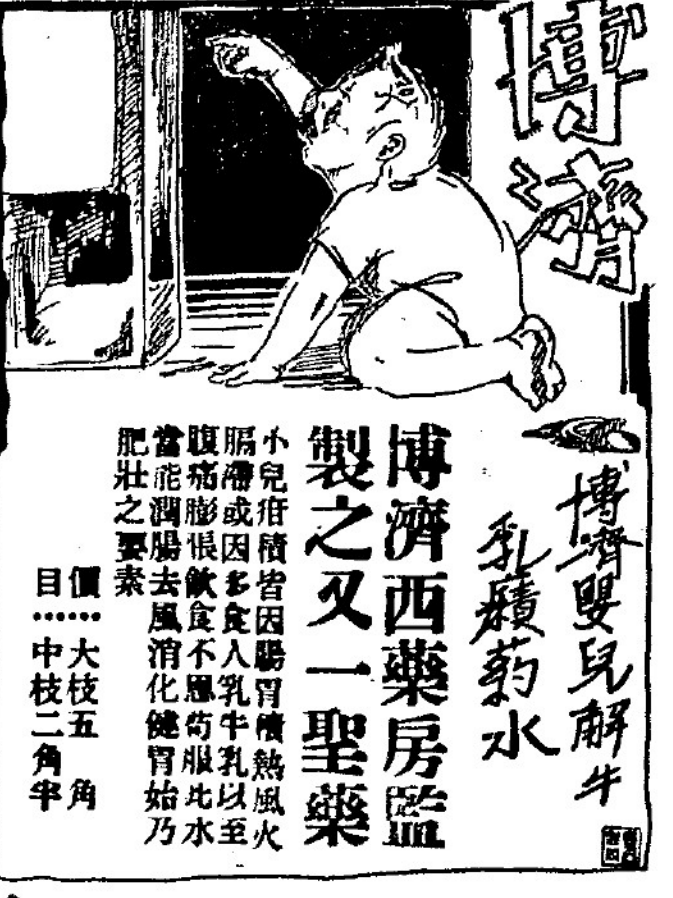 博濟
博濟嬰兒解牛
乳癪药水
博濟西藥房監
製之又一聖藥
小兒疳積皆因腸胃積熱風火
膈滯或因多食人乳牛乳以至
腹痛膨脹飲食不思苟服此水
當能潤腸去風消化健胃始乃
肥壯之要素
價…大枝五角
目…中枝二角半